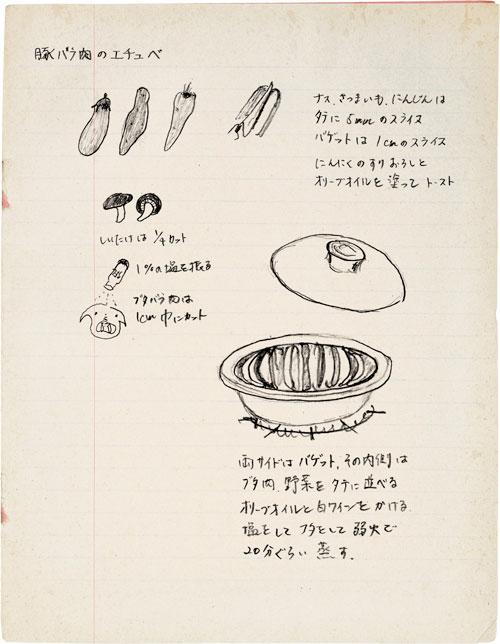 豚バラ肉のエチュベ
ナス、さつまいも、にんじんは
タテに5mmのスライス
バゲットは1cmのスライス
にんにくのすりおろしと
オリーブオイルを塗ってトースト
しいたけは1/4カット
1%の塩を振る
ブタバラ肉は
1cm巾にカット
両サイドはバゲット、その内側は
ブタ肉、野菜をタテに並べる
オリーブオイルと白ワインをかける
塩をしてフタをして弱火で
20分ぐらい蒸す。